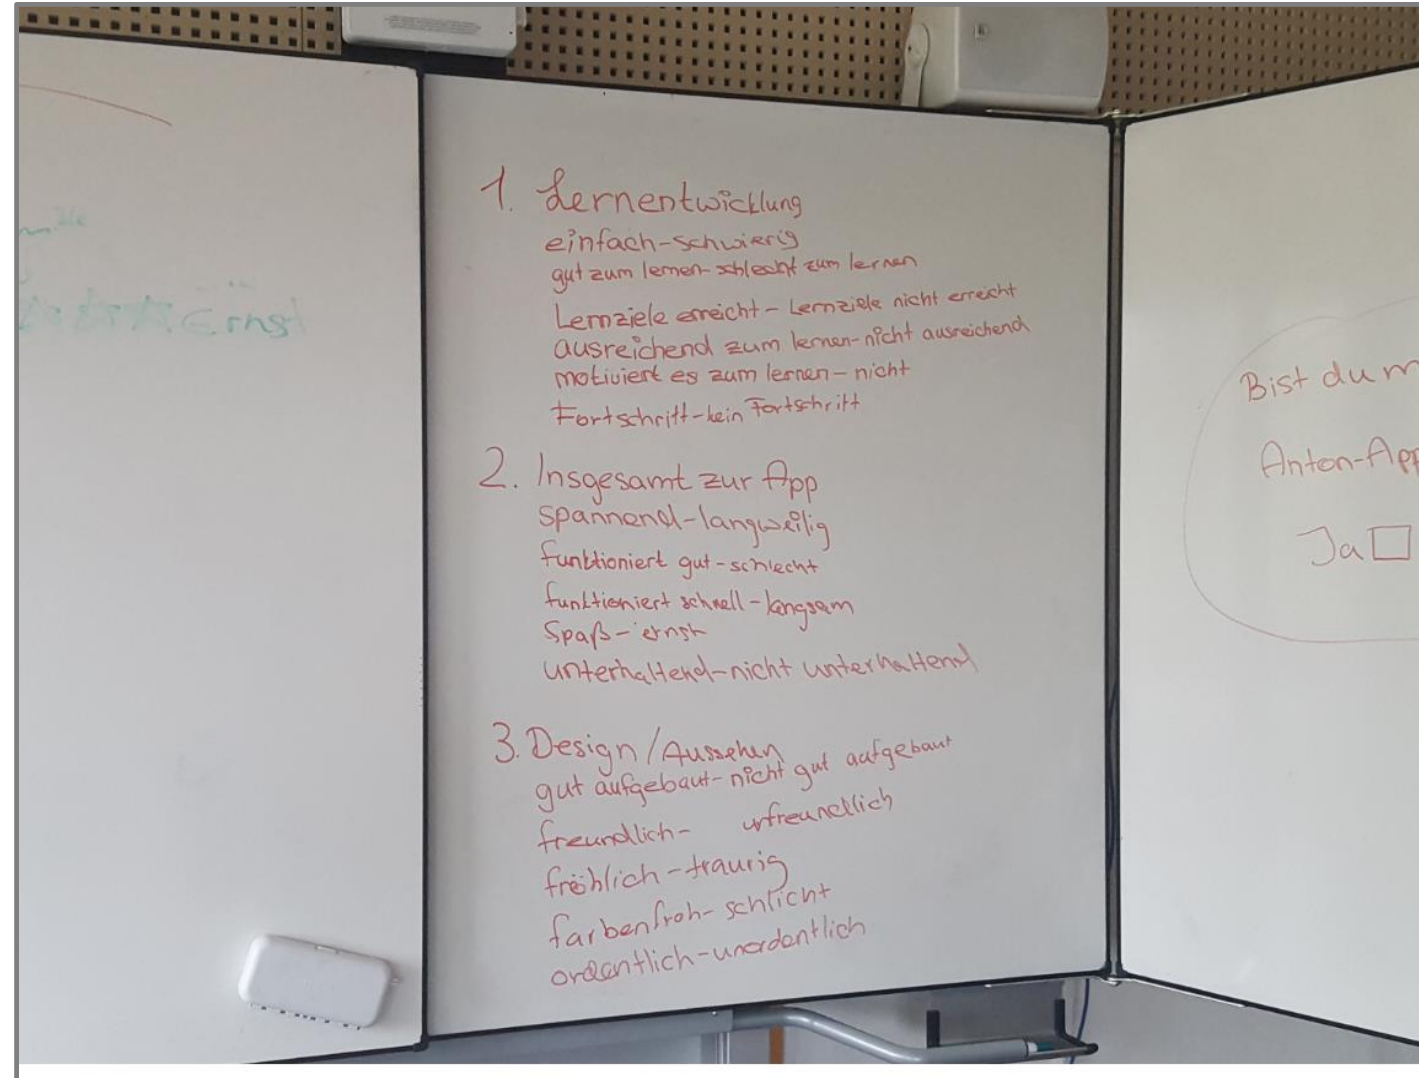 Ernst
1. Lernentwicklung
einfach-schwierig
gut zum lernen-schlecht zum lernen
Lernziele erreicht - Lernziele nicht erreicht
ausreichend zum lernen-nicht ausreichend
motiviert es zum lernen - nicht
Fortschritt-kein Fortschritt
2. Insgesamt zur App
spannend-langweilig
funktioniert gut - schlecht
funktioniert schnell - langsam
Spaß - ernst
unterhaltend-nicht unterhaltend
3. Design/Aussehen
gut aufgebaut-nicht gut aufgebaut
freundlich- unfreundlich
fröhlich-traurig
farbenfroh- schlicht
ordentlich-unordentlich
Bist du m
Anton-App
Ja